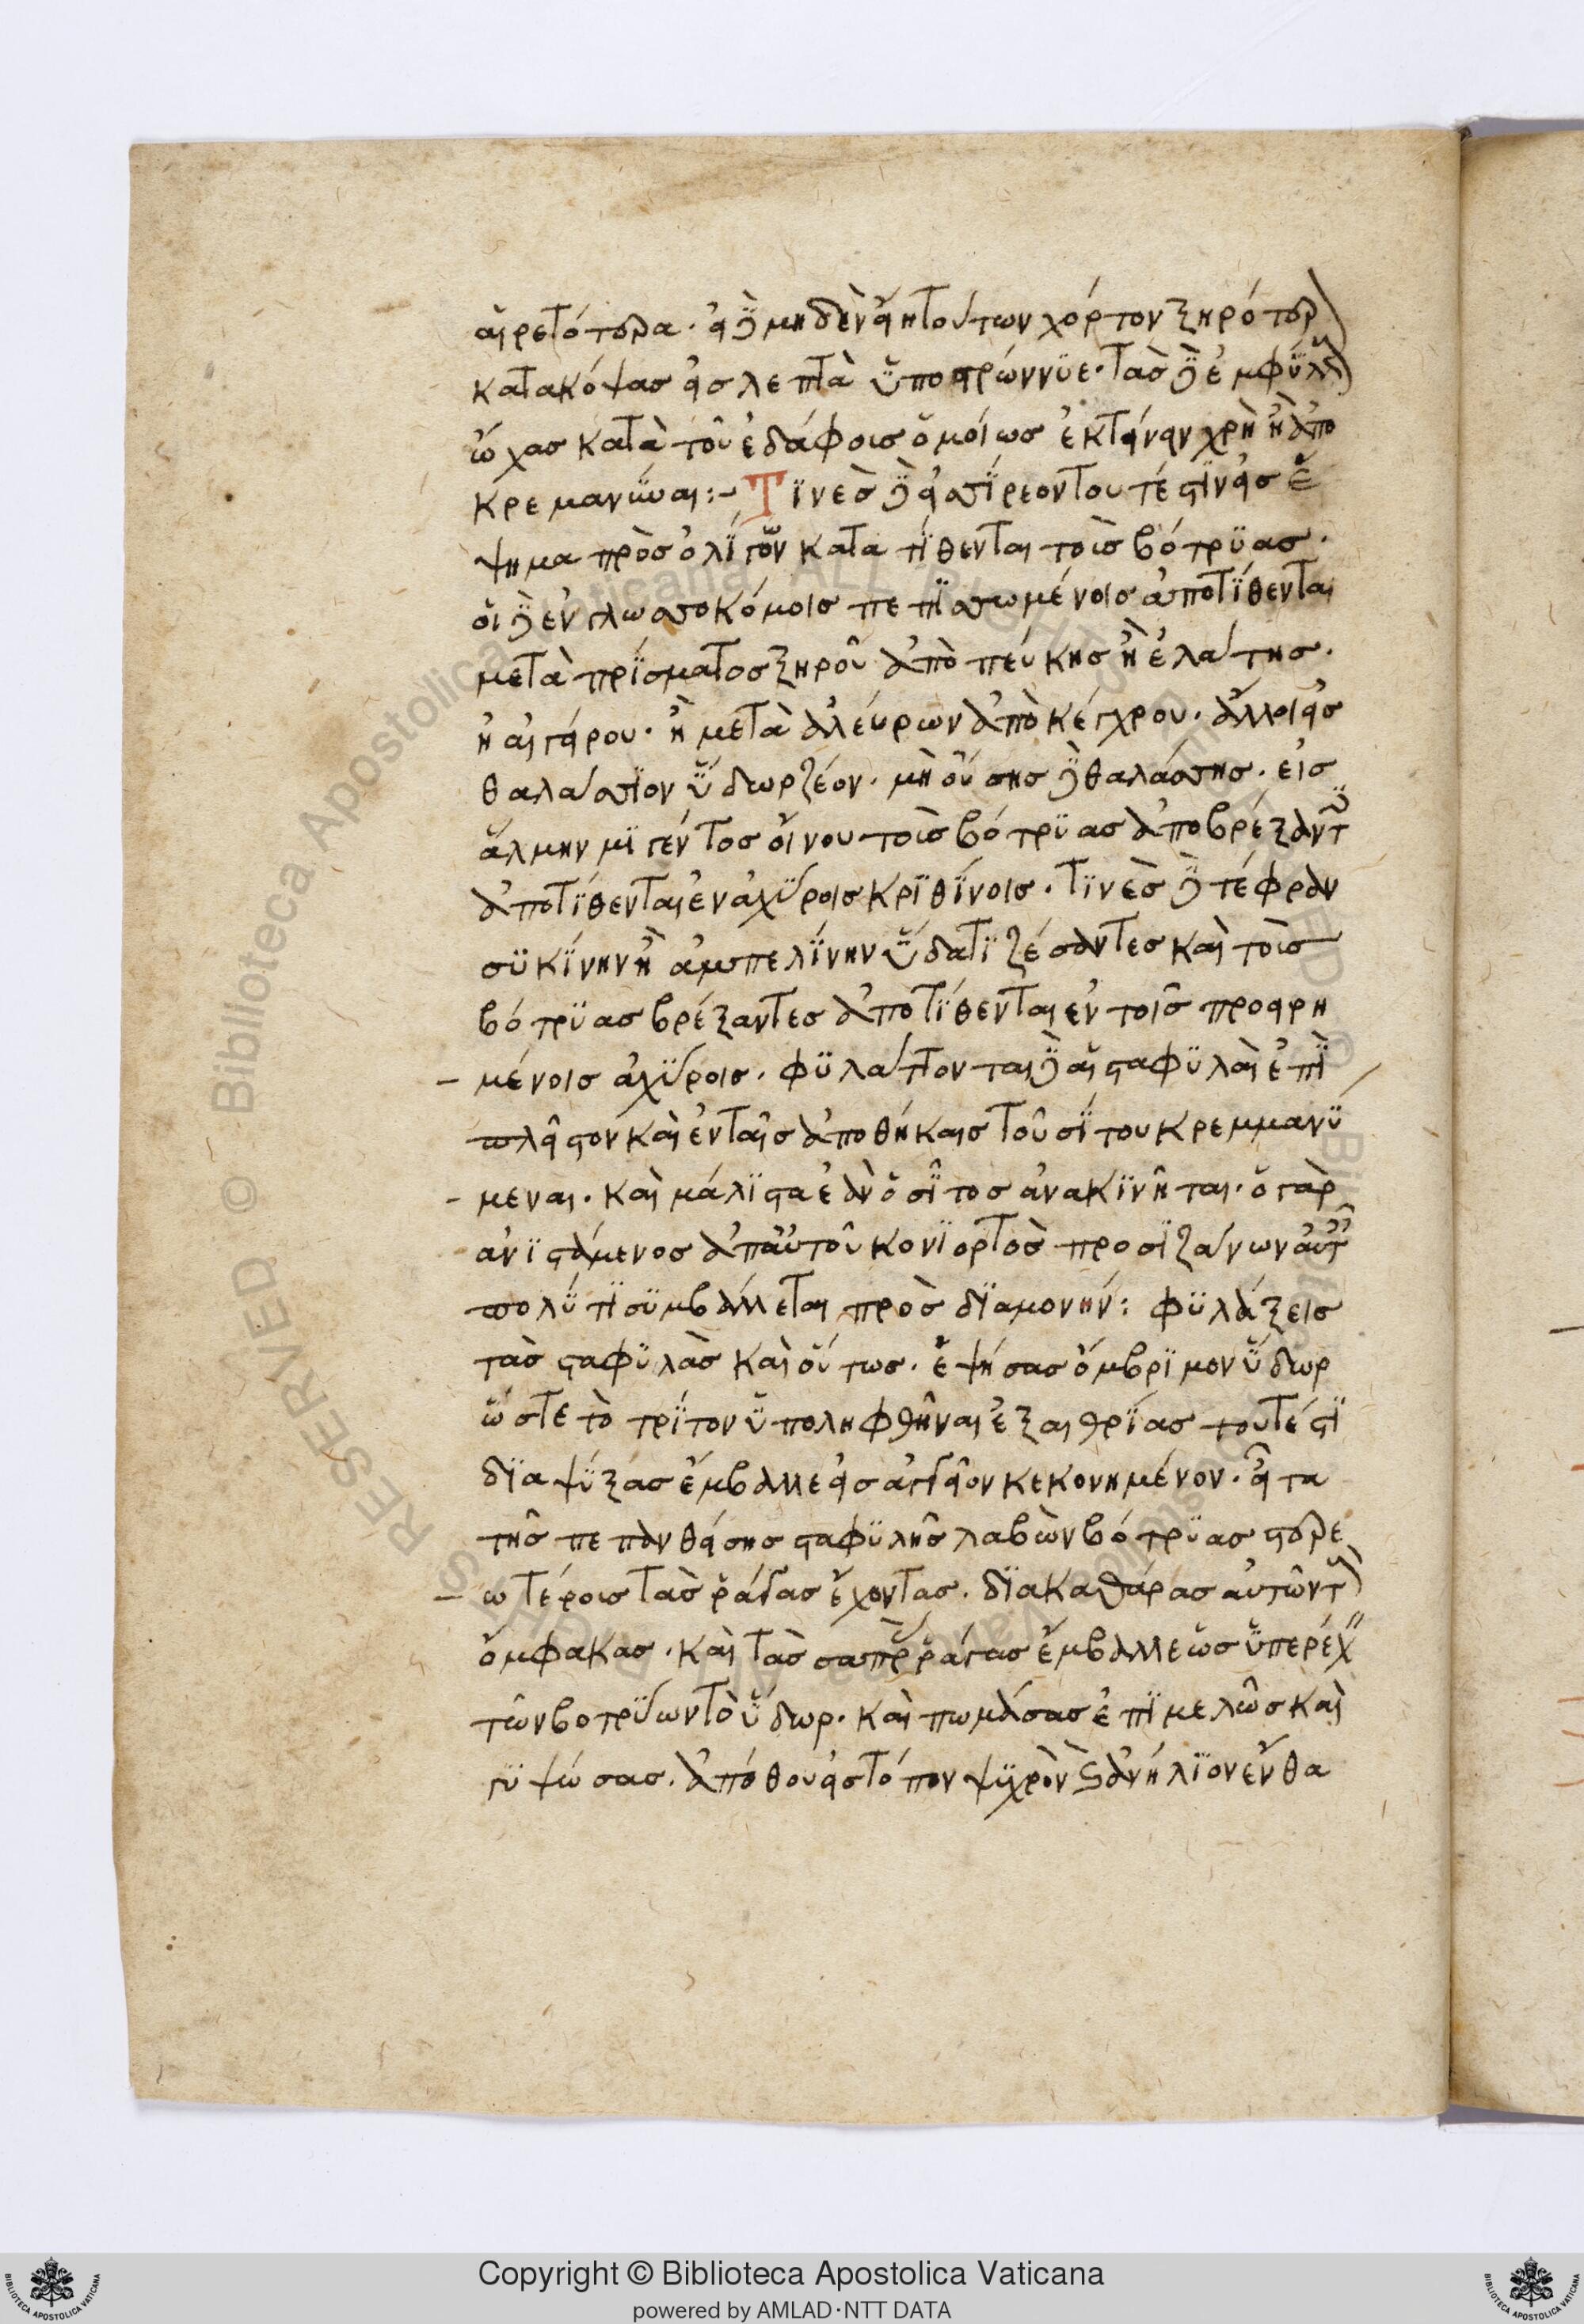 αἱρετότερα. εἰ δὲ μηδὲν εἴη τούτων χόρτον ξηρότερ
κατακόψας εἰς λεπτὰ ὑποστρώννυε. τὰς δὲ ἐμφύλλ
ὤχας κατὰ τοῦ ἐδάφους ὁμοίως ἐκτείνειν χρὴ ἢ ἀπο
κρεμανύναι:- Τινὲς δὲ εἰς σίρεον τουτέστιν εἰς ἕ
ψημα πρὸς ὀλίγον κατατίθενται τοὺς βότρυας.
οἱ δὲ ἐν γλωσσοκόμοις πεπισσωμένοις ἀποτίθενται
μετὰ πρίσματος ξηροῦ ἀπὸ πεύκης ἢ ἐλάτης.
ἢ αἰγείρου. ἢ μετὰ ἀλεύρων ἀπὸ κέγχρου. ἄλλοι εἰς
θαλάσσιον ὕδωρ ζέον. μὴ οὔσης δὲ θαλάσσης. εἰς
ἅλμην μιγέντος οἴνου τοὺς βότρυας ἀποβρέξαντ
ἀποτίθενται ἐν ἀχύροις κριθίνοις. τινὲς δὲ τέφραν
συκίνην ἢ ἀμπελίνην ὕδατι ζέσαντες καὶ τοὺς
βότρυας βρέξαντες ἀποτίθενται ἐν τοῖς προειρη
μένοις ἀχύροις. φυλάττονται δὲ αἱ σταφυλαὶ ἐπὶ
πλεῖστον καὶ ἐν ταῖς ἀποθήκαις τοῦ σίτου κρεμμανύ
μεναι. καὶ μάλιστα ἐὰν ὁ σῖτος ἀνακινῆται. ὁ γὰρ
ἀνιστάμενος ἀπ' αὐτοῦ κονιορτὸς προσιζάνων αὐτ
πολύ τι συμβάλλεται πρὸς διαμονήν: φυλάξεις
τὰς σταφυλὰς καὶ οὕτως. ἑψήσας ὄμβριμον ὕδωρ
ὥστε τὸ τρίτον ὑποληφθῆναι ἐξ αἰθρίας τουτέστι
διαψύξας ἔμβαλλε εἰς ἀγγεῖον κεκονημένον. εἶτα
τῆς πεπανθείσης σταφυλῆς λαβὼν βότρυας στερε
ωτέρους τὰς ῥάγας ἔχοντας. διακαθάρας αὐτῶν τ
ὄμφακας. καὶ τὰς σαπρ ῥάγας ἔμβαλλε ἕως ὑπερέχ
τῶν βοτρύων τὸ ὕδωρ. καὶ πωμάσας ἐπιμελῶς καὶ
γυψώσας. ἀπόθου εἰς τόπον ψυχρὸν ϗ ἀνήλιον ἔνθα
Copyright © Biblioteca Apostolica Vaticana
powered by AMLAD·NTT DATA